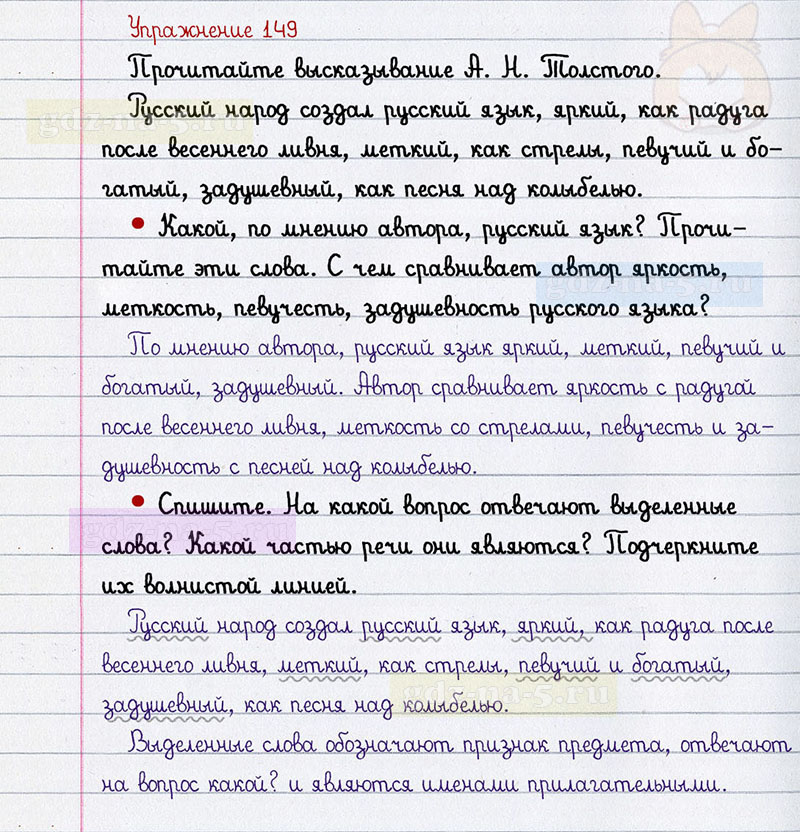 Упражнение 149
Прочитайте высказывание А. Н. Толстого.
Русский народ создал русский язык, яркий, как радуга
после весеннего ливня, меткий, как стрелы, певучий и бо-
гатый, задушевный, как песня над колыбелью.
• Какой, по мнению автора, русский язык? Прочи-
тайте эти слова. С чем сравнивает автор яркость,
меткость, певучесть, задушевность русского языка?
По мнению автора, русский язык яркий, меткий, певучий и
богатый, задушевный. Автор сравнивает яркость с радугой
после весеннего ливня, меткость со стрелами, певучесть и за-
душевность с песней над колыбелью.
• Спишите. На какой вопрос отвечают выделенные
слова? Какой частью речи они являются? Подчеркните
их волнистой линией.
Русский народ создал русский язык, яркий, как радуга после
весеннего ливня, меткий, как стрелы, певучий и богатый,
задушевный, как песня над колыбелью.
Выделенные слова обозначают признак предмета, отвечают
на вопрос какой? и являются именами прилагательными.
gdz-na-5.ru
gdz-na-5.ru
gdz-na-5.ru
gdz-na-5.ru